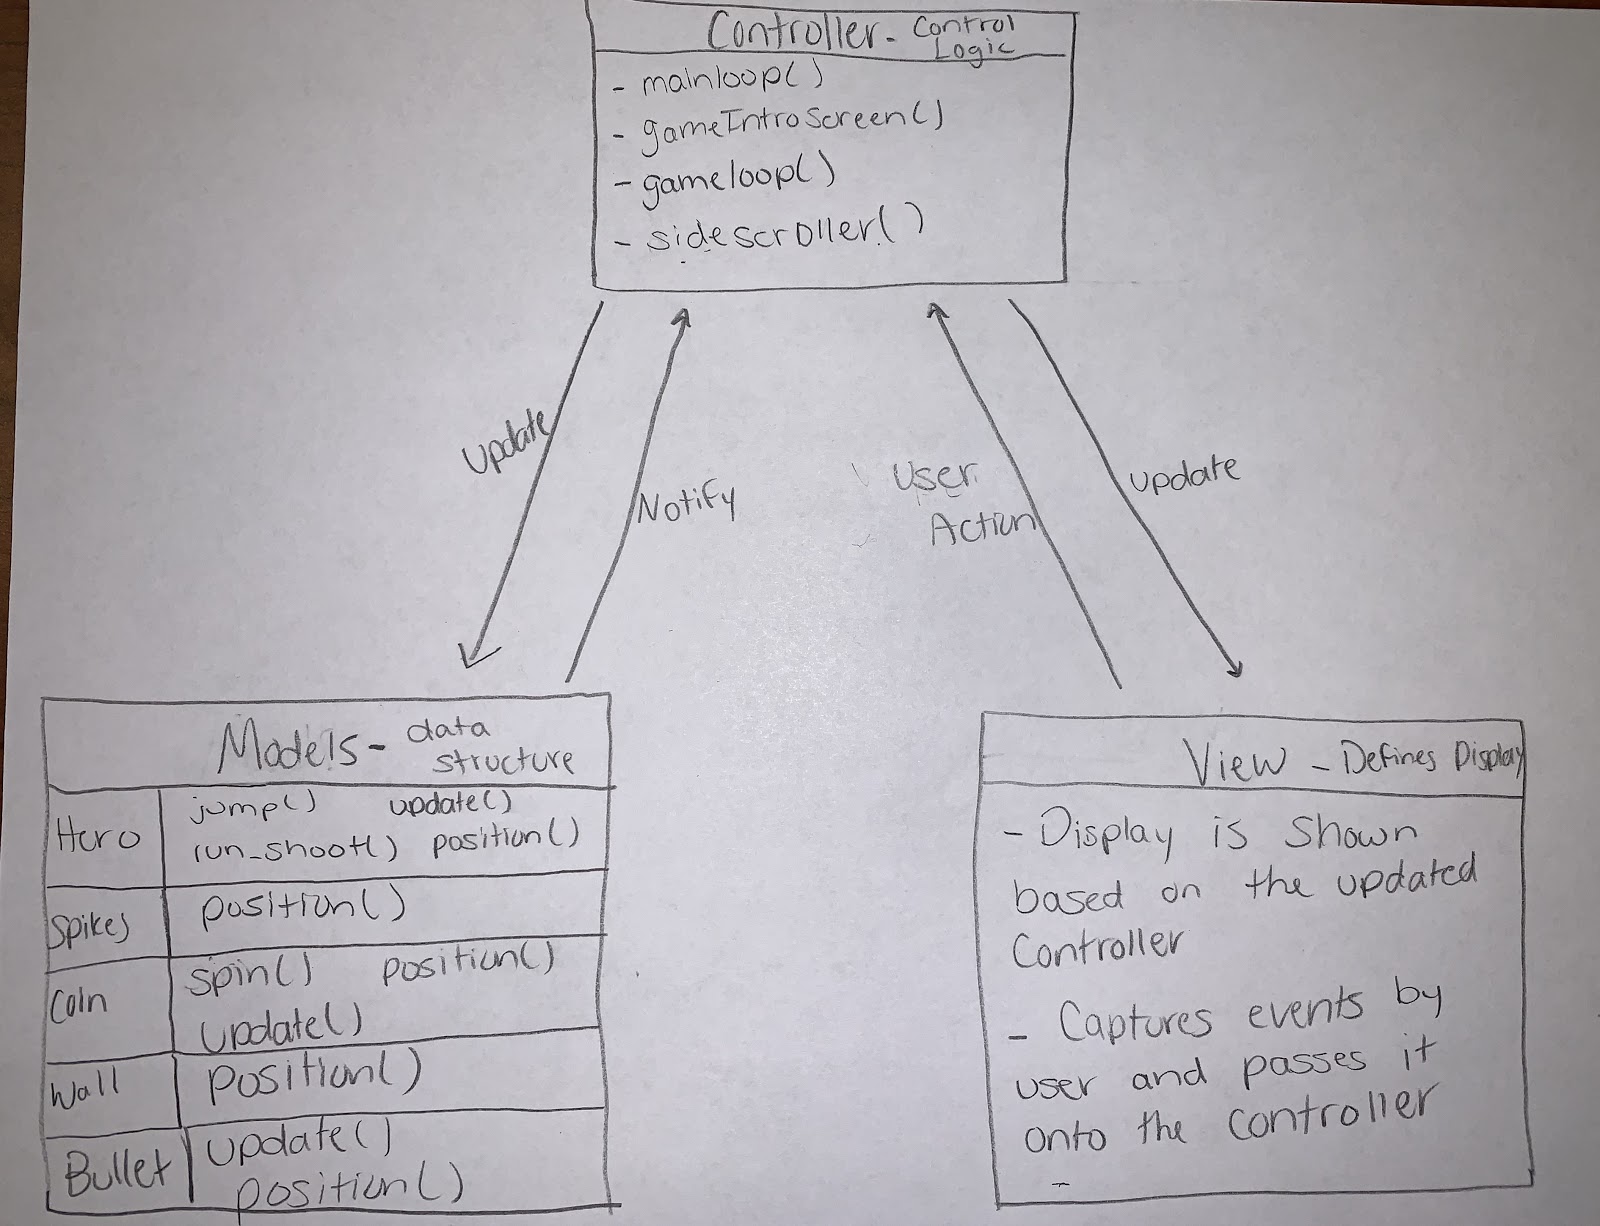 Controller - Control
Logic
- mainloop()
- gameIntroScreen()
- gameloop()
- sidescroller()
Update
Notify
User
Action
update
Models - data
structure
Hero
jump() update()
run_shoot() position()
Spikes
position()
Coin
spin() position()
update()
Wall
position()
Bullet
update()
position()
View - Defines Display
- Display is shown
based on the updated
Controller
- Captures events by
user and passes it
onto the controller
-